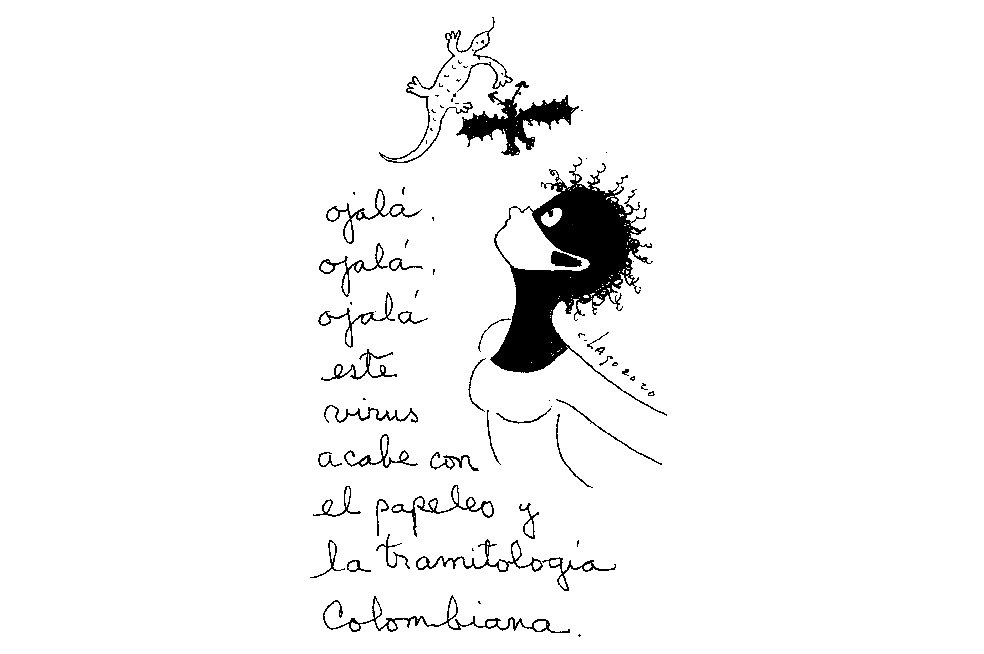 ojalá,
ojalá,
ojalá
este
virus
acabe con
el papeleo y
la tramitología
Colombiana.
c.Lago2020